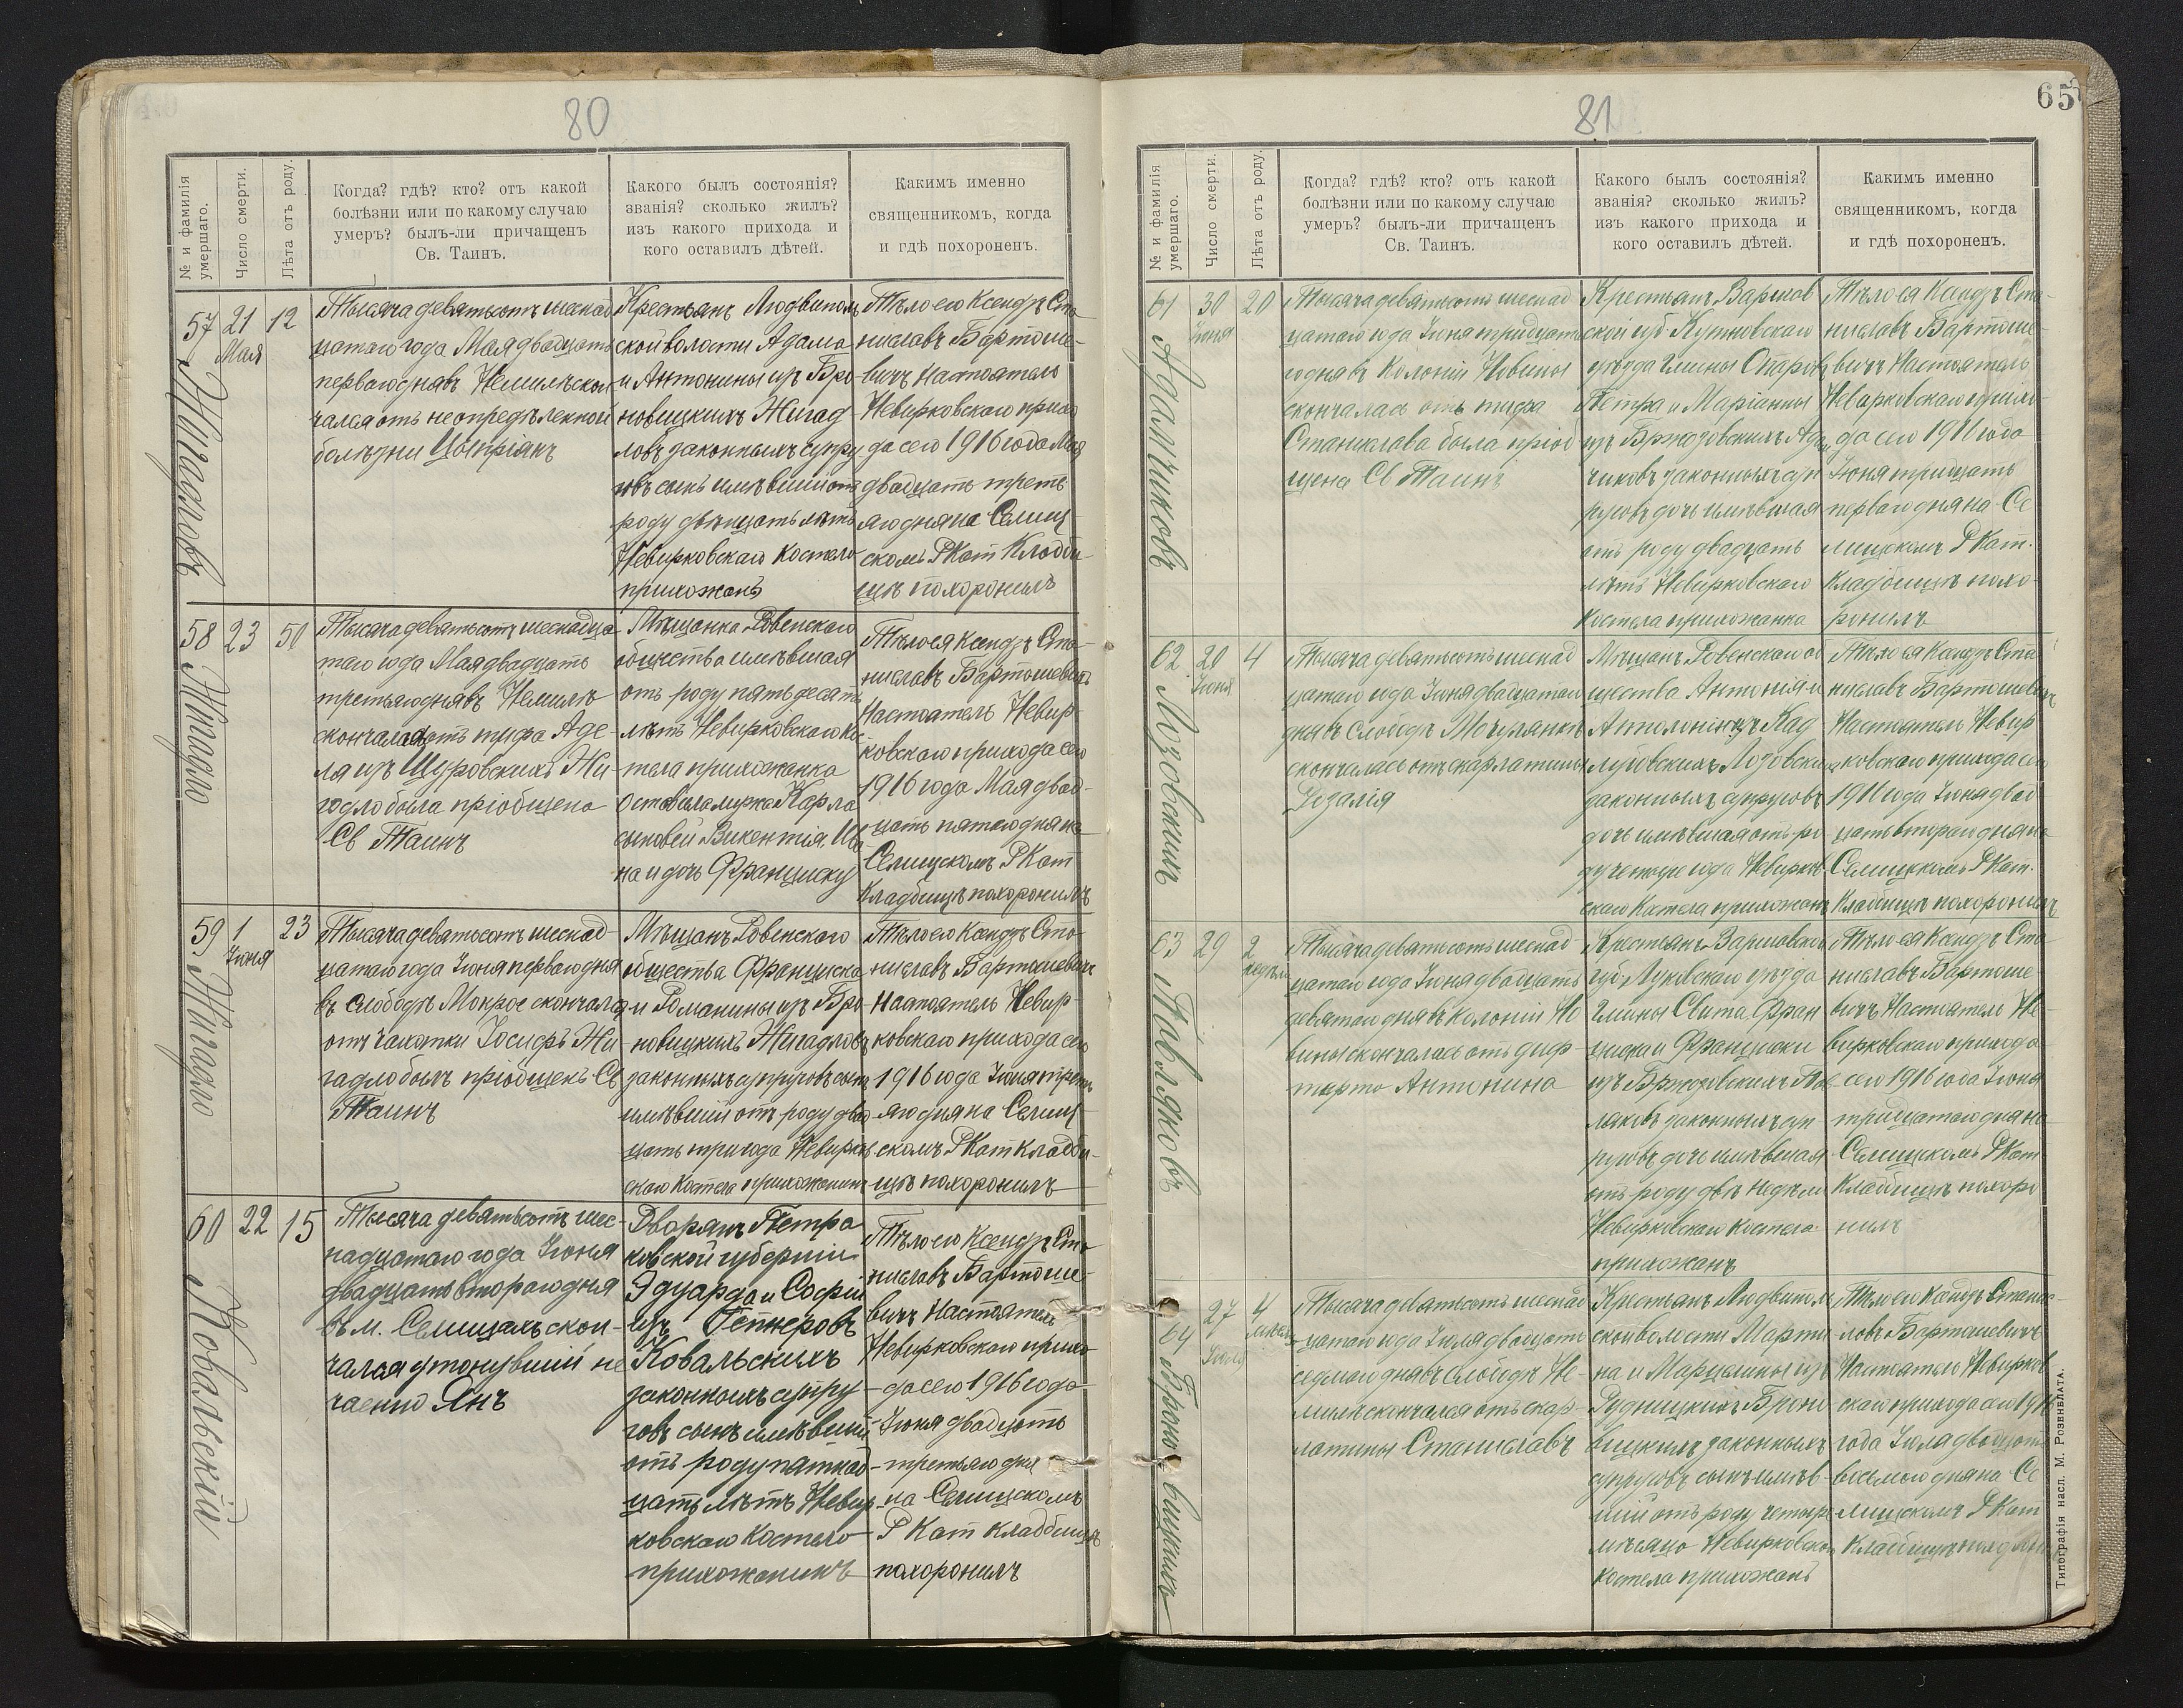 80
№ и фамилія умершаго.
Число смерти.
Лѣта отъ роду.
Когда? гдѣ? кто? отъ какой
болѣзни или по какому случаю
умеръ? былъ-ли причащенъ
Св. Таинъ.
Какого былъ состоянія?
званія? сколько жилъ?
изъ какого прихода и
кого оставилъ дѣтей.
Какимъ именно
священникомъ, когда
и гдѣ похороненъ.
57 Жигадловъ
21 Мая
12
Тысяча девятьсотъ шеснад
цатаго года Мая двадцать
перваго дня въ Немилѣ скон
чался отъ неопредѣленной
болѣзни Ципріянъ
Крестьянъ Людвиполь
ской волости Адама
и Антонины изъ Бро
новицкихъ Жигад
ловъ законныхъ супру
говъ сынъ имѣвшій отъ
роду двѣнцать лѣтъ
Невирковскаго Костела
прихожанъ
Тѣло его Ксендзъ Ста
ниславъ Бартоше-
вичъ Настоятель
Невирковскаго прихо
да сего 1916 года Мая
двадцать треть
яго дня на Селищ
скомъ Р Кат Кладби
щѣ похоронилъ
58 Жигадло
23
50
Тысяча девятьсотъ шеснадца
таго года Мая двадцать
третьяго дня въ Немилѣ
скончалась отъ тифа Аде-
ля изъ Щуровскихъ Жи-
гадло была пріобщена
Св Таинъ
Мѣщанка Ровенскаго
общества имѣвшая
отъ роду пятьдесятъ
лѣтъ Невирковскаго Ко
стела прихожанка
Оставила мужа Карла
сыновей Викентія, Ива
на и дочь Франциску
Тѣло ея Ксендзъ Ста-
ниславъ Бартошевичъ
Настоятель Невир-
ковскаго прихода сего
1916 года Мая двад-
цать пятаго дня на
Селищскомъ Р Кат
Кладбищѣ похоронилъ
59 Жигадло
1 Іюня
23
Тысяча девятьсотъ шеснад-
цатаго года Іюня перваго дня
въ слободѣ Мокрое скончался
отъ чахотки Іосифъ Жи-
гадло былъ пріобщенъ Св
Таинъ
Мѣщанъ Ровенскаго
общества Франциска
и Романины изъ Бро-
новицкихъ Жигадловъ
законныхъ супруговъ сынъ
имѣвшій отъ роду двад
цать три года Невирков
скаго Костела прихожанинъ
Тѣло его Ксендзъ Ста-
ниславъ Бартошевичъ
Настоятель Невир-
ковскаго прихода сего
1916 года Іюня треть
яго дня на Селищ-
скомъ Р Кат Кладби-
щѣ похоронилъ
60 Ковальскій
22
15
Тысяча девятьсотъ шес-
надцатаго года Іюня
двадцать втораго дня
въ м. Селищахъ скон-
чался утонувшій не
чаенно Янъ
Дворянъ Петра
ковской губерніи
Эдуарда и Софіи
изъ Гепнеровъ
Ковальскихъ
законныхъ супру-
говъ сынъ имѣвшій
отъ роду пятнад
цать лѣтъ Невир
ковскаго Костела
прихожанинъ
Тѣло его Ксендзъ Ста
ниславъ Бартоше-
вичъ Настоятель
Невирковскаго прихо
да сего 1916 года
Іюня двадцать
третьяго дня
на Селищскомъ
Р Кат Кладбищѣ
похоронилъ
81
65
№ и фамилія умершаго.
Число смерти.
Лѣта отъ роду.
Когда? гдѣ? кто? отъ какой
болѣзни или по какому случаю
умеръ? былъ-ли причащенъ
Св. Таинъ.
Какого былъ состоянія?
званія? сколько жилъ?
изъ какого прихода и
кого оставилъ дѣтей.
Какимъ именно
священникомъ, когда
и гдѣ похороненъ.
61 Адамчиковъ
30 Іюня
20
Тысяча девятьсотъ шеснад
цатаго года Іюня тридцата
го дня въ Колоніи Новины
скончалась отъ тифа
Станислава была пріоб
щена Св Таинъ
Крестьянъ Варшав
ской губ Кутновскаго
уѣзда Гмины
Петра и Маріанны
изъ Бржозовскихъ Адам
чиковъ законныхъ суп
руговъ дочь имѣвшая
отъ роду двадцать
лѣтъ Невирковскаго
Костела прихожанка
Тѣло ея Ксендзъ Ста-
ниславъ Бартоше-
вичъ Настоятель
Невирковскаго прихо
да сего 1916 года
Іюня тридцать
перваго дня на Се
лищскомъ Р Кат.
Кладбищѣ похо-
ронилъ
62 Лозовскихъ
20 Іюня
4
Тысяча девятьсотъ шеснад
цатаго года Іюня двадцатаго
дня въ слободѣ Мочулянкѣ
скончалась отъ скарлатины
Розалія
Мѣщанъ Ровенскаго об
щества Антонія и
Аполоніи изъ Кад
лубовскихъ Лозовскихъ
законныхъ супруговъ
дочь имѣвшая отъ ро-
ду четыре года Невирков
скаго Костела прихожанъ
Тѣло ея Ксендзъ Ста
ниславъ Бартошевичъ
Настоятель Невир
ковскаго прихода сего
1916 года Іюня двад
цать втораго дня на
Селищскомъ Р Кат.
Кладбищѣ похоронилъ
63 Павляковъ
29
2 недѣли
Тысяча девятьсотъ шеснад-
цатаго года Іюня двадцать
девятаго дня въ колоніи Но
вины скончалась отъ диф-
терта Антонина
Крестьянъ Варшавской
губ Луковскаго уѣзда
Гмины Свита Фран
циска и Франциски
изъ Бржозовскихъ Пав
ляковъ законныхъ суп
руговъ дочь имѣвшая
отъ роду двѣ недѣли
Невирковскаго Костела
прихожанъ
Тѣло ея Ксендзъ Ста
ниславъ Бартоше
вичъ Настоятель Не-
вирковскаго прихода
сего 1916 года Іюня
тридцатаго дня на
Селищскомъ Р Кат
Кладбищѣ похоро
нилъ
64 Броновицкихъ
27 Іюля
4 мѣсяца
Тысяча девятьсотъ шеснад
цатаго года Іюля двадцать
седмаго дня въ слободѣ Не-
милѣ скончался отъ скар-
латины Станиславъ
Крестьянъ Людвиполь
ской волости Марти
на и Марцелины изъ
Рудницкихъ Броно
вицкихъ законныхъ
супруговъ сынъ имѣв-
шій отъ роду четыре
мѣсяца Невирковскаго
Костела прихожанъ
Тѣло его Ксендзъ Станис-
лавъ Бартошевичъ
Настоятель Невирков
скаго прихода сего 1916
года Іюля двадцать
восьмого дня на Се
лищскомъ Р Кат
Кладбищѣ
Типографія насл. М. Розенблата.